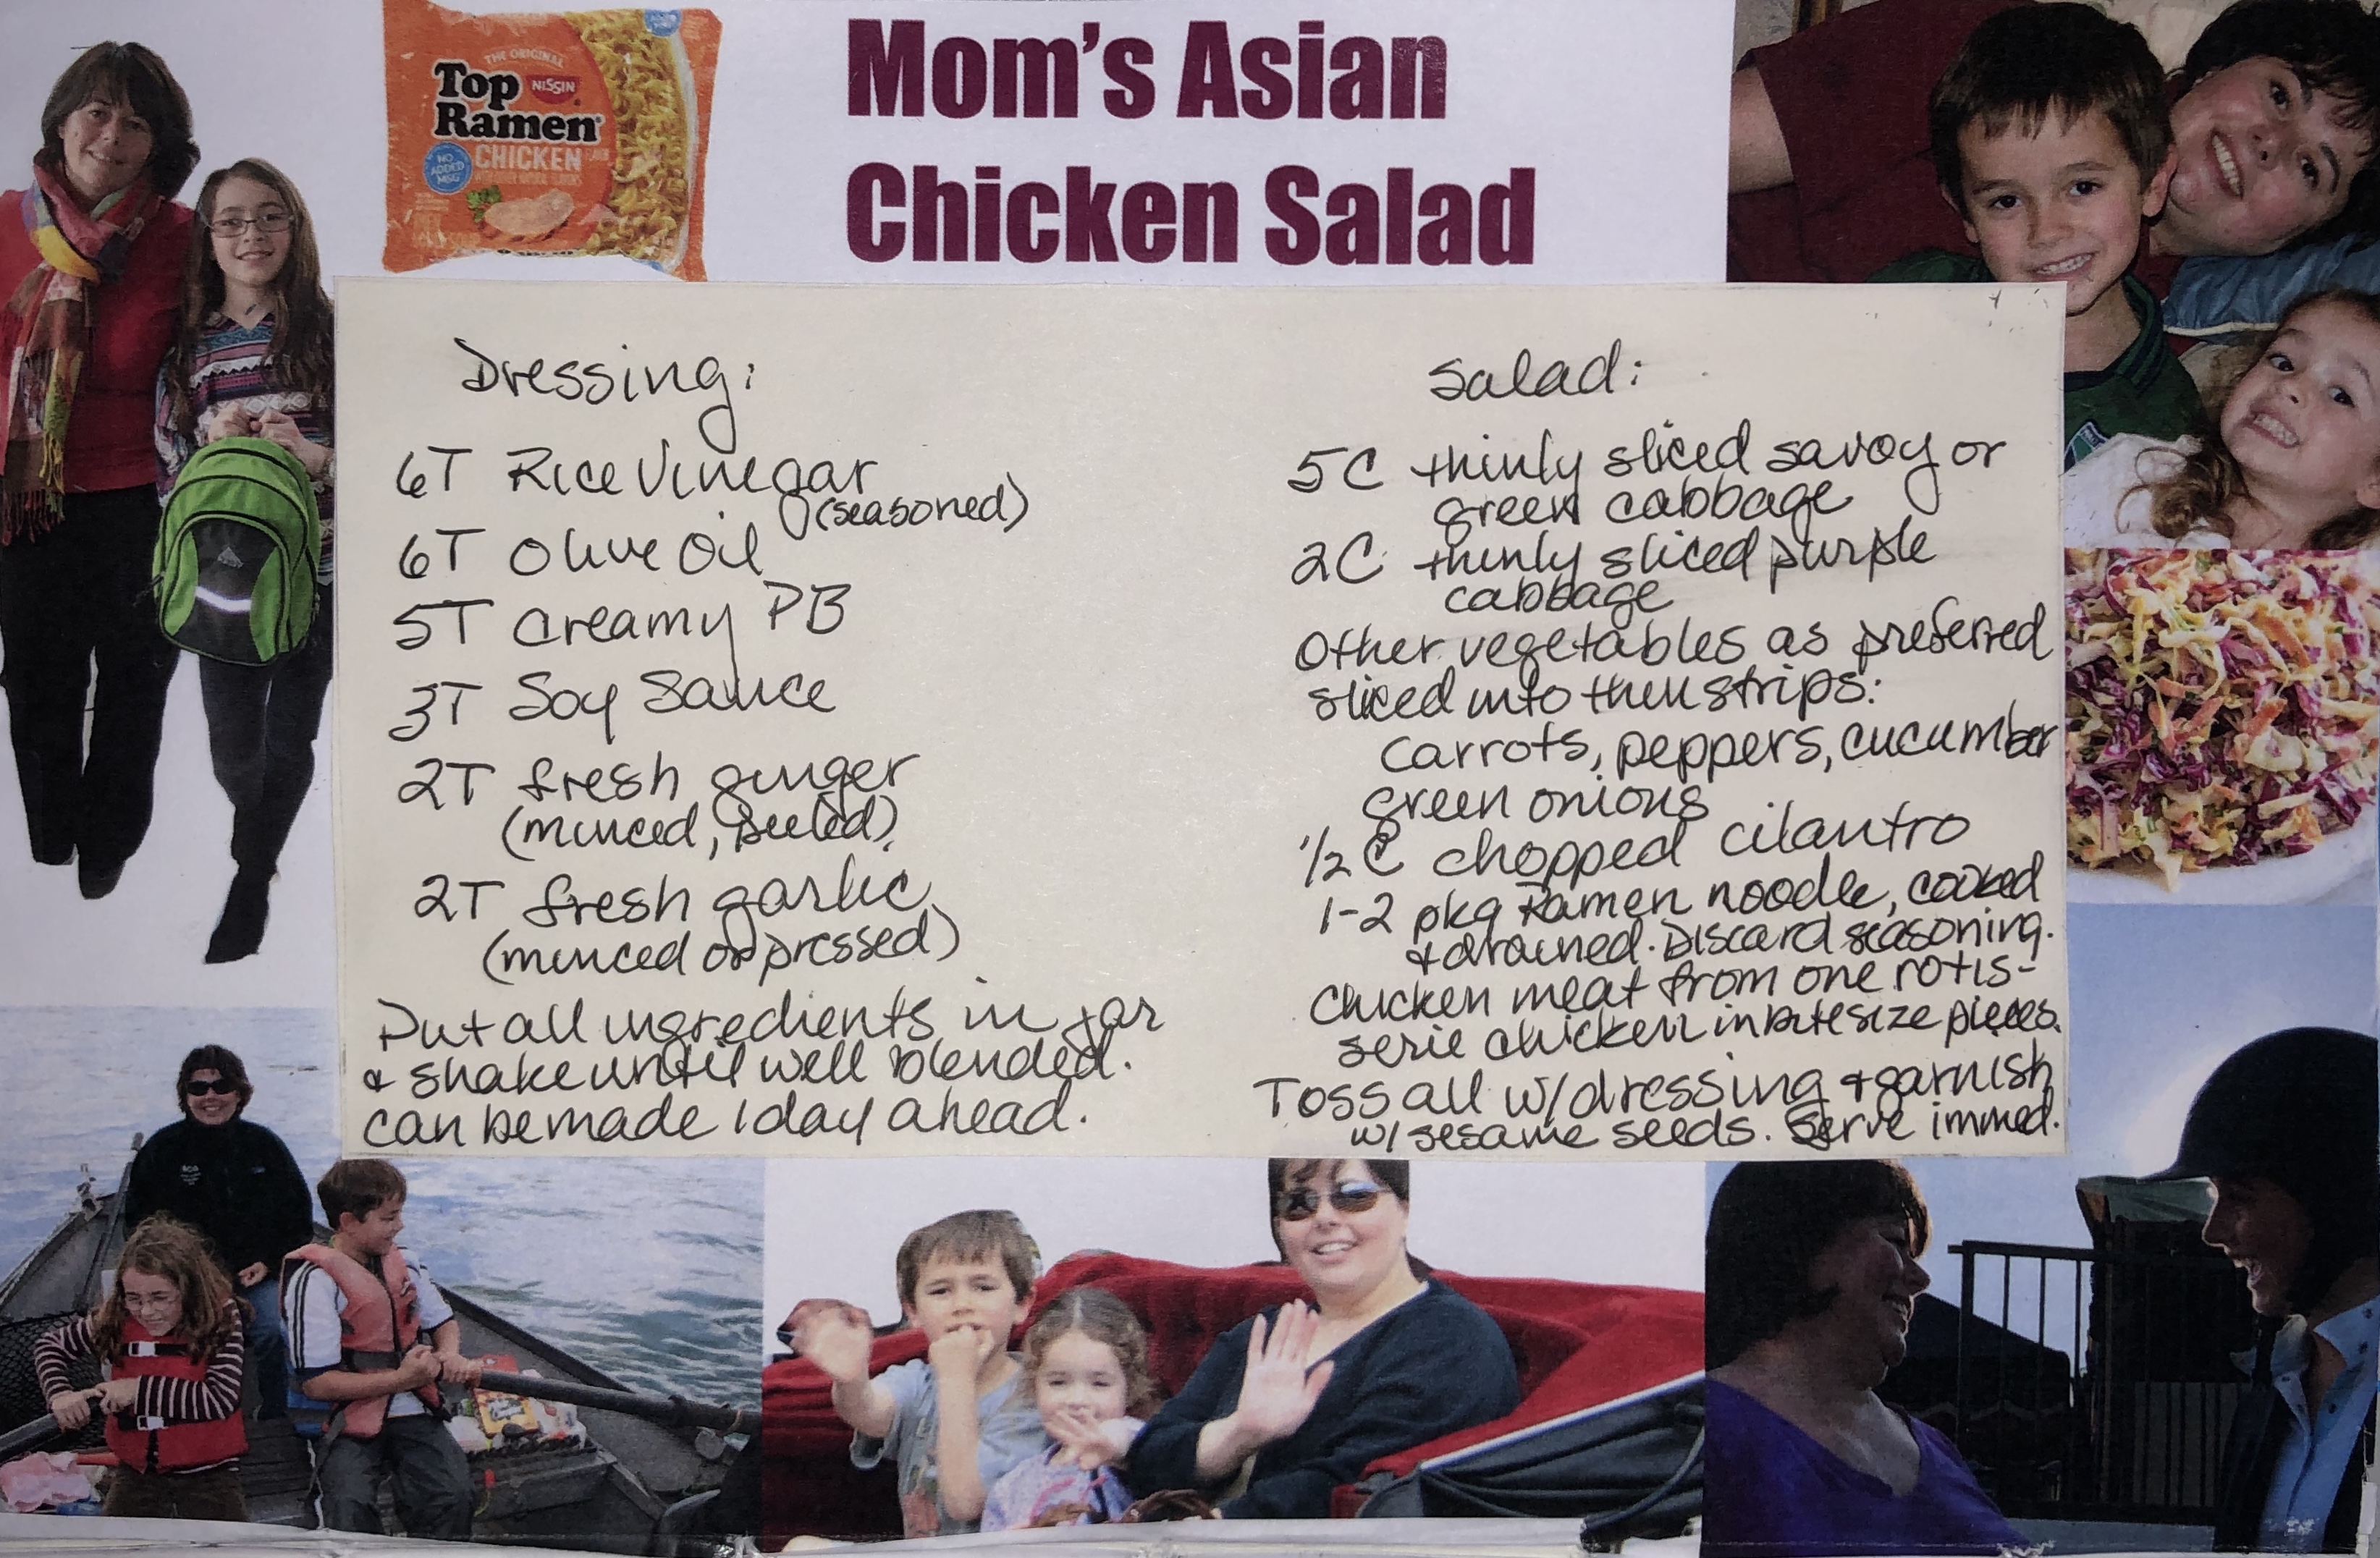 THE ORIGINAL
Top
NISSIN
Ramen
NO
ADDED
MSG
CHICKEN
FLAVOR
Mom's Asian
Chicken Salad
Dressing:
6T Rice Vinegar
(seasoned)
6T Olive Oil
5T Creamy PB
3T Soy Sauce
2T fresh ginger
(minced, peeled)
2T fresh garlic
(minced or pressed)
Put all ingredients in jar
& shake until well blended.
can be made 1 day ahead.
Salad:
5C thinly sliced savoy or
green cabbage
2C thinly sliced purple
cabbage
Other vegetables as preferred
sliced into thin strips:
carrots, peppers, cucumber
green onions
1/2 C chopped cilantro
1-2 pkg Ramen noodle, cooked
& drained. Discard seasoning.
Chicken meat from one rotis-
serie chicken in bite size pieces.
Toss all w/ dressing & garnish
w/ sesame seeds. Serve immed.